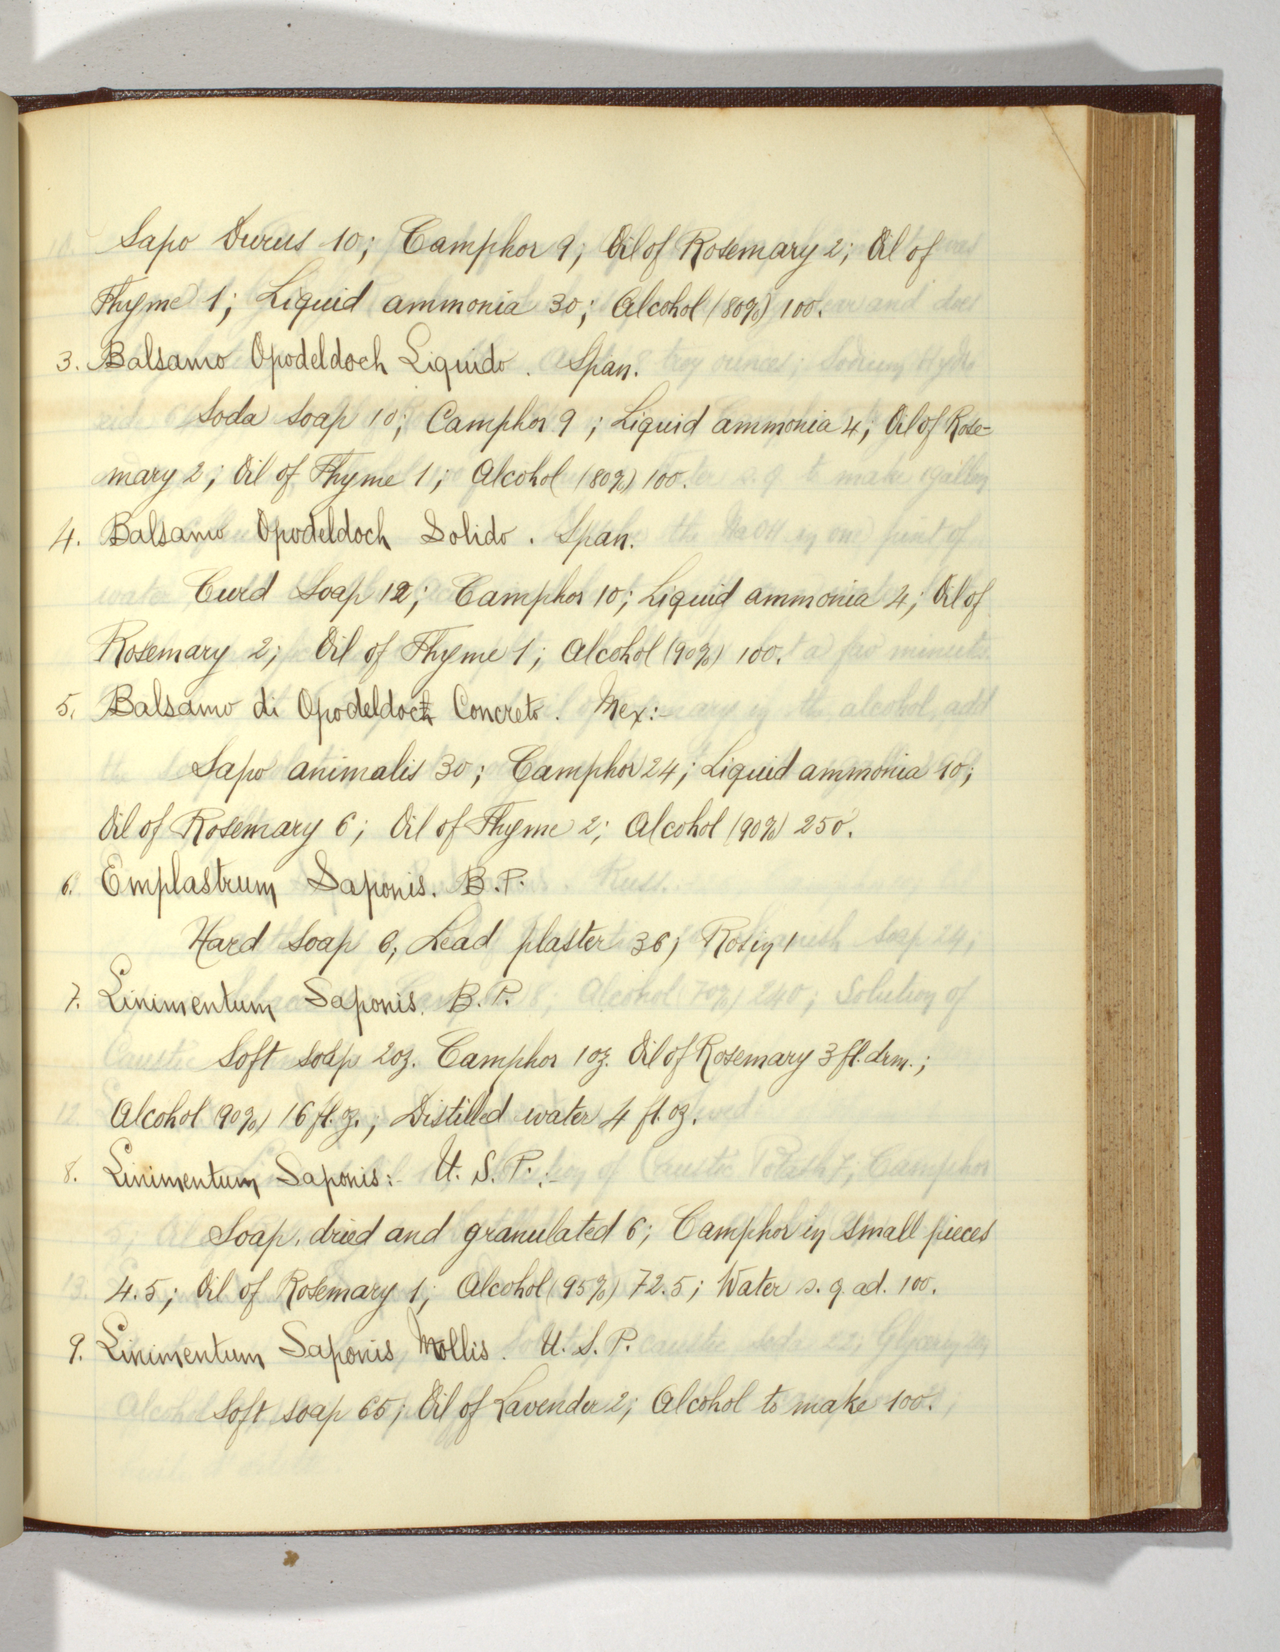 Sapo Durus 10; Camphor 9; Oil of Rosemary 2; Oil of
Thyme 1; Liquid ammonia 30; Alcohol (80%) 100.
3. Balsamo Opodeldoch Liquido. Span.
Soda soap 10; Camphor 9; Liquid ammonia 4; Oil of Rose-
mary 2; Oil of Thyme 1; Alcohol (80%) 100.
4. Balsamo Opodeldoch Solido. Span.
Curd Soap 12; Camphor 10; Liquid ammonia 4; Oil of
Rosemary 2; Oil of Thyme 1; Alcohol (90%) 100.
5. Balsamo di Opodeldoch Concreto. Mex:-
Sapo animalis 30; Camphor 24; Liquid ammonia 10;
Oil of Rosemary 6; Oil of Thyme 2; Alcohol (90%) 250.
6. Emplastrum Saponis. B.P.
Hard Soap 6, Lead plaster 36; Rosin 1
7. Linimentum Saponis. B.P.
Soft soap 2oz. Camphor 1oz. Oil of Rosemary 3 fl. drm.;
Alcohol 90%) 16 fl. oz.; Distilled water 4 fl. oz.
8. Linimentum Saponis:- U. S. P. :-
Soap, dried and granulated 6; Camphor in small pieces
4.5; Oil of Rosemary 1; Alcohol (95%) 72.5; Water s. q. ad. 100.
9. Linimentum Saponis Mollis. U. S. P.
Soft soap 65; Oil of Lavender 2; Alcohol to make 100.